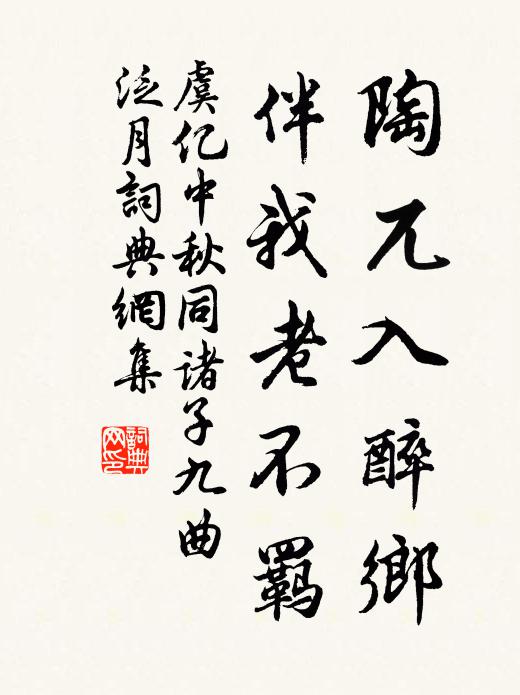 陶兀入醉鄉
伴我老不羈
虞仡中秋同诸子九曲
泛月詞典網集
詞典网印